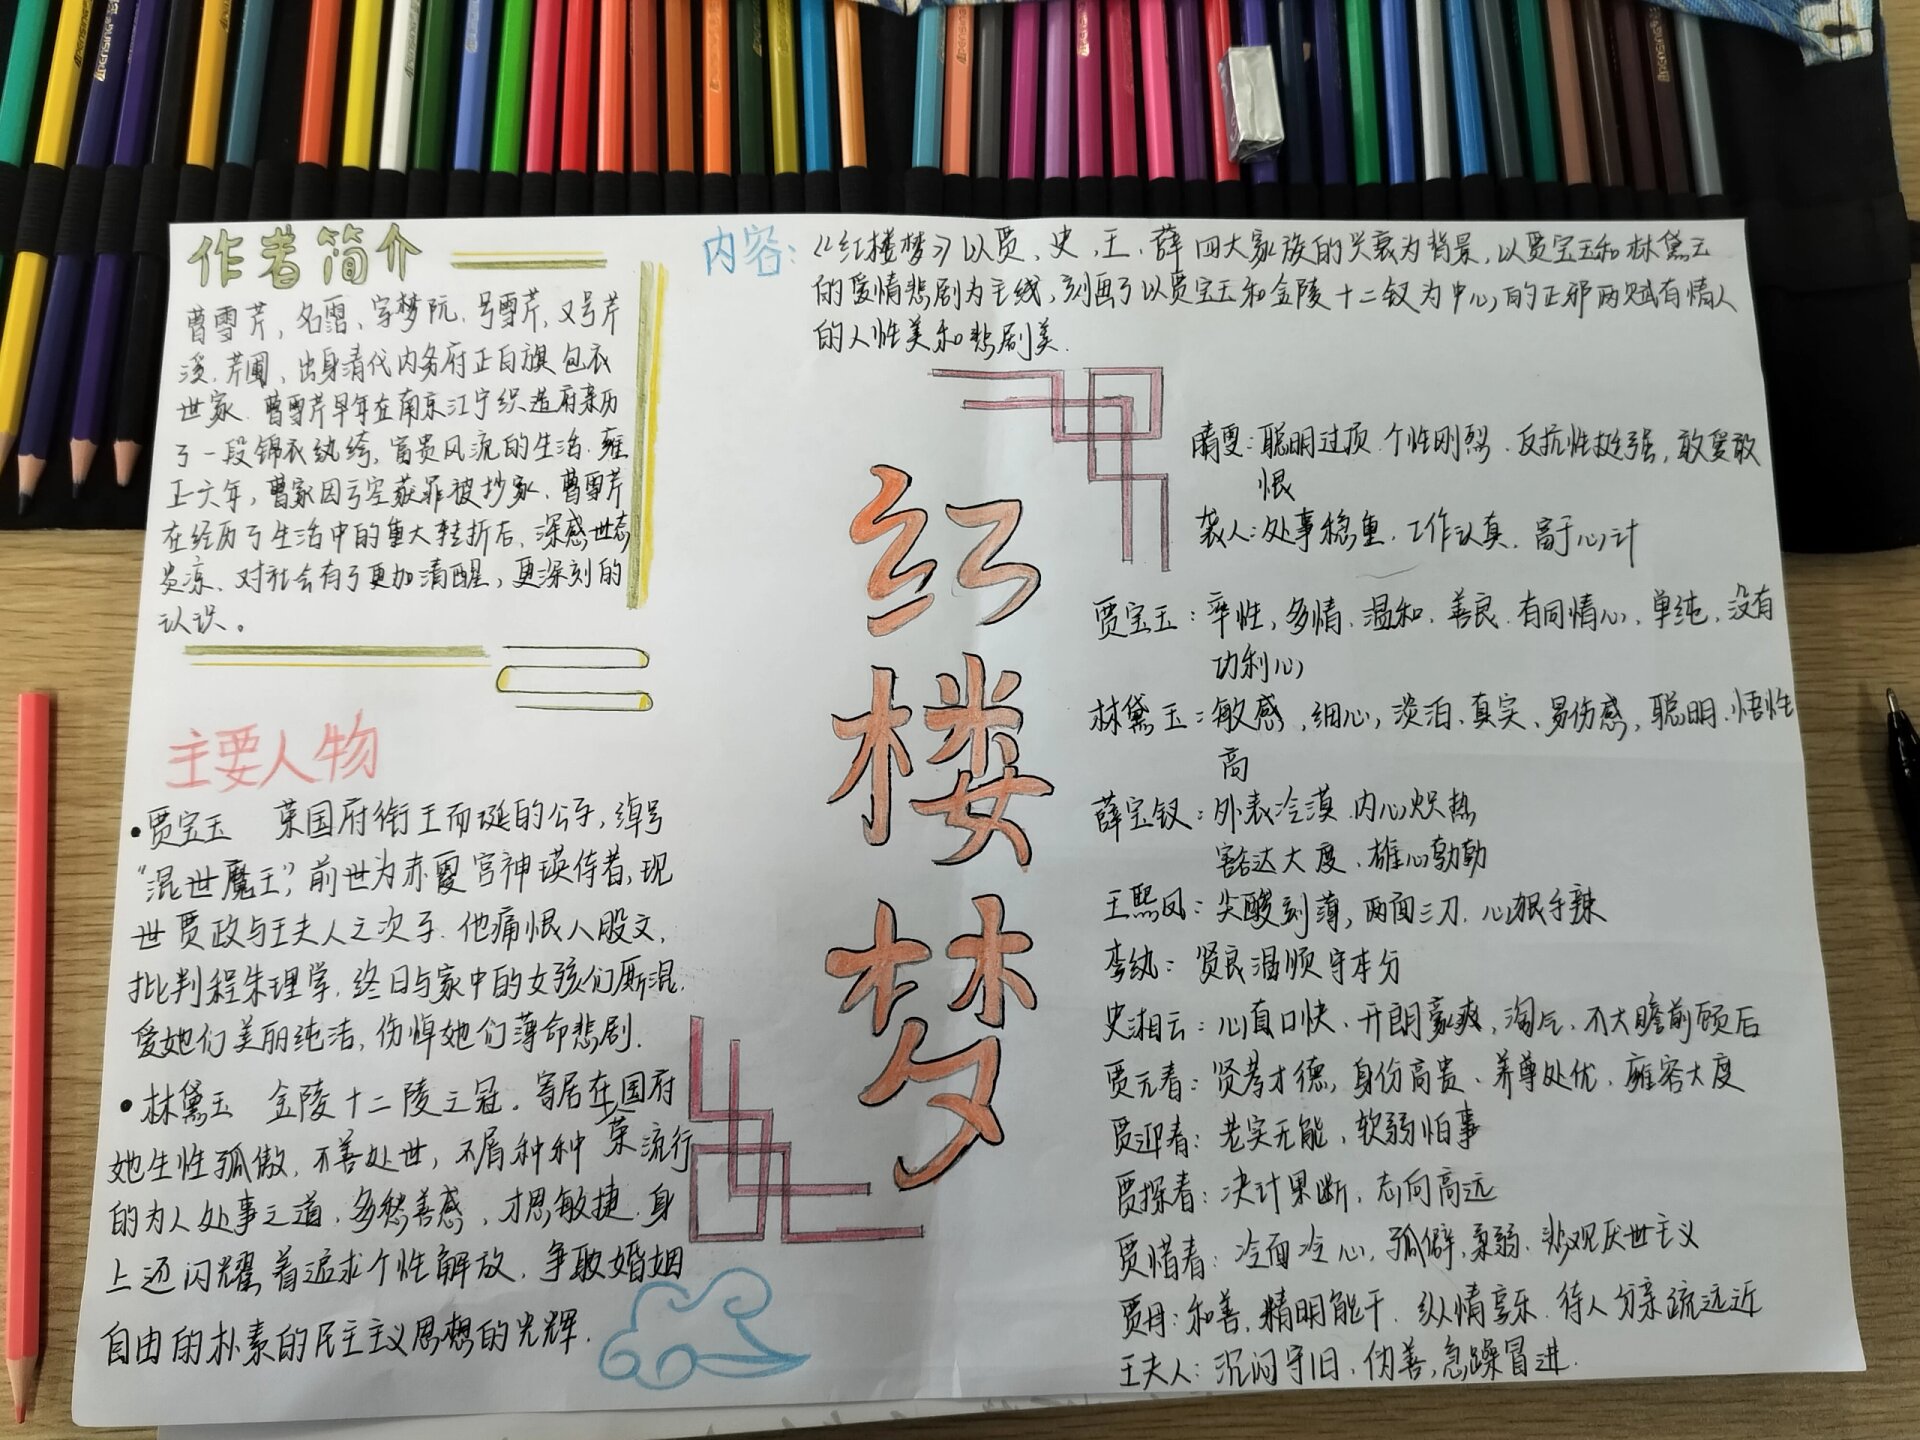 作者简介
曹雪芹，名霑、字梦阮，号雪芹，又号芹
溪，芹圃、出身清代内务府正白旗包衣
世家. 曹雪芹早年在南京江宁织造府亲历
了一段锦衣纨绔，富贵风流的生活. 雍
正六年，曹家因亏空获罪被抄家、曹雪芹
在经历了生活中的重大转折后，深感世态
炎凉、对社会有了更加清醒，更深刻的
认识。
主要人物
•贾宝玉 荣国府衔玉而诞的公子，绰号
“混世魔王”，前世为赤霞宫神瑛侍者，现
世贾政与王夫人之次子. 他痛恨八股文，
批判程朱理学，终日与家中的女孩们厮混.
爱她们美丽纯洁，伤悼她们薄命悲剧.
•林黛玉 金陵十二陵之冠. 寄居在荣国府
她生性孤傲，不善处世，不屑种种流行
的为人处事之道，多愁善感，才思敏捷. 身
上还闪耀着追求个性解放，争取婚姻
自由的朴素的民主主义思想的光辉.
内容：《红楼梦》以贾、史、王、薛四大家族的兴衰为背景，以贾宝玉和林黛玉
的爱情悲剧为主线，刻画了以贾宝玉和金陵十二钗为中心的正邪两赋有情人
的人性美和悲剧美.
红楼梦
晴雯：聪明过顶 个性刚烈、反抗性挺强，敢爱敢
恨
袭人：处事稳重，工作认真，富于心计
贾宝玉：率性，多情，温和，善良，有同情心，单纯，没有
功利心
林黛玉：敏感，细心，淡泊、真实、易伤感，聪明、悟性
高
薛宝钗：外表冷漠 内心炽热
豁达大度、雄心勃勃
王熙凤：尖酸刻薄，两面三刀，心狠手辣
李纨：贤良温顺守本分
史湘云：心直口快、开朗豪爽，淘气、不大瞻前顾后
贾元春：贤孝才德，身份高贵、养尊处优、雍容大度
贾迎春：老实无能，软弱怕事
贾探春：决计果断，志向高远
贾惜春：冷面冷心，孤僻，柔弱、悲观厌世主义
贾母：和善，精明能干，纵情享乐，待人分亲疏远近
王夫人：沉闷守旧，伪善，急躁冒进.